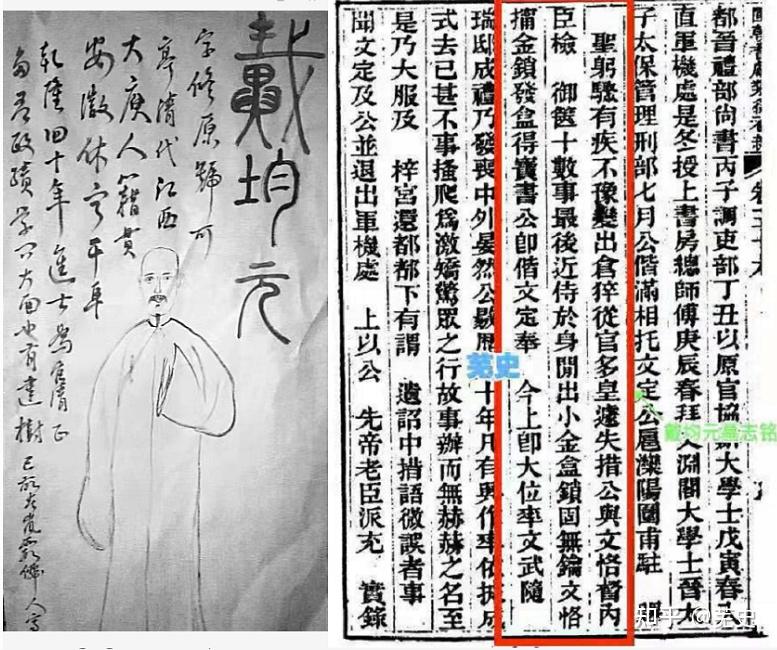 戴均元
字修原號可
亭清代江西
大庾人籍貫
安徽休寧
乾隆四十年進士為官清正
政績
有建樹
都晉禮部尚書丙子調吏部丁丑以原官協辦大學士戊寅春
直軍機處是冬授上書房總師傅庚辰春拜文淵閣大學士晉太
子太保管理刑部七月公偕滿相托文定公扈灤陽圍甫駐
聖躬驟有疾不豫變出倉猝從官多皇遽失措公與文恪督內
臣檢 御篋十數事最後近侍於身間出小金盒鎖固無鑰文恪
擰金鎖發盒得寶書公即偕文定奉 今上即大位率文武隨
瑞邸成禮乃發喪中外晏然公十年凡有興作率依成
式去已甚不事搔爬為激矯驚眾之行故事辦而無赫赫之名至
是乃大服及 梓宮還都都下有謂 遺詔中措語微誤者事
聞文定及公並退出軍機處 上以公 先帝老臣派充 實錄
芜史
戴均元墓志铭
知乎 @芜史